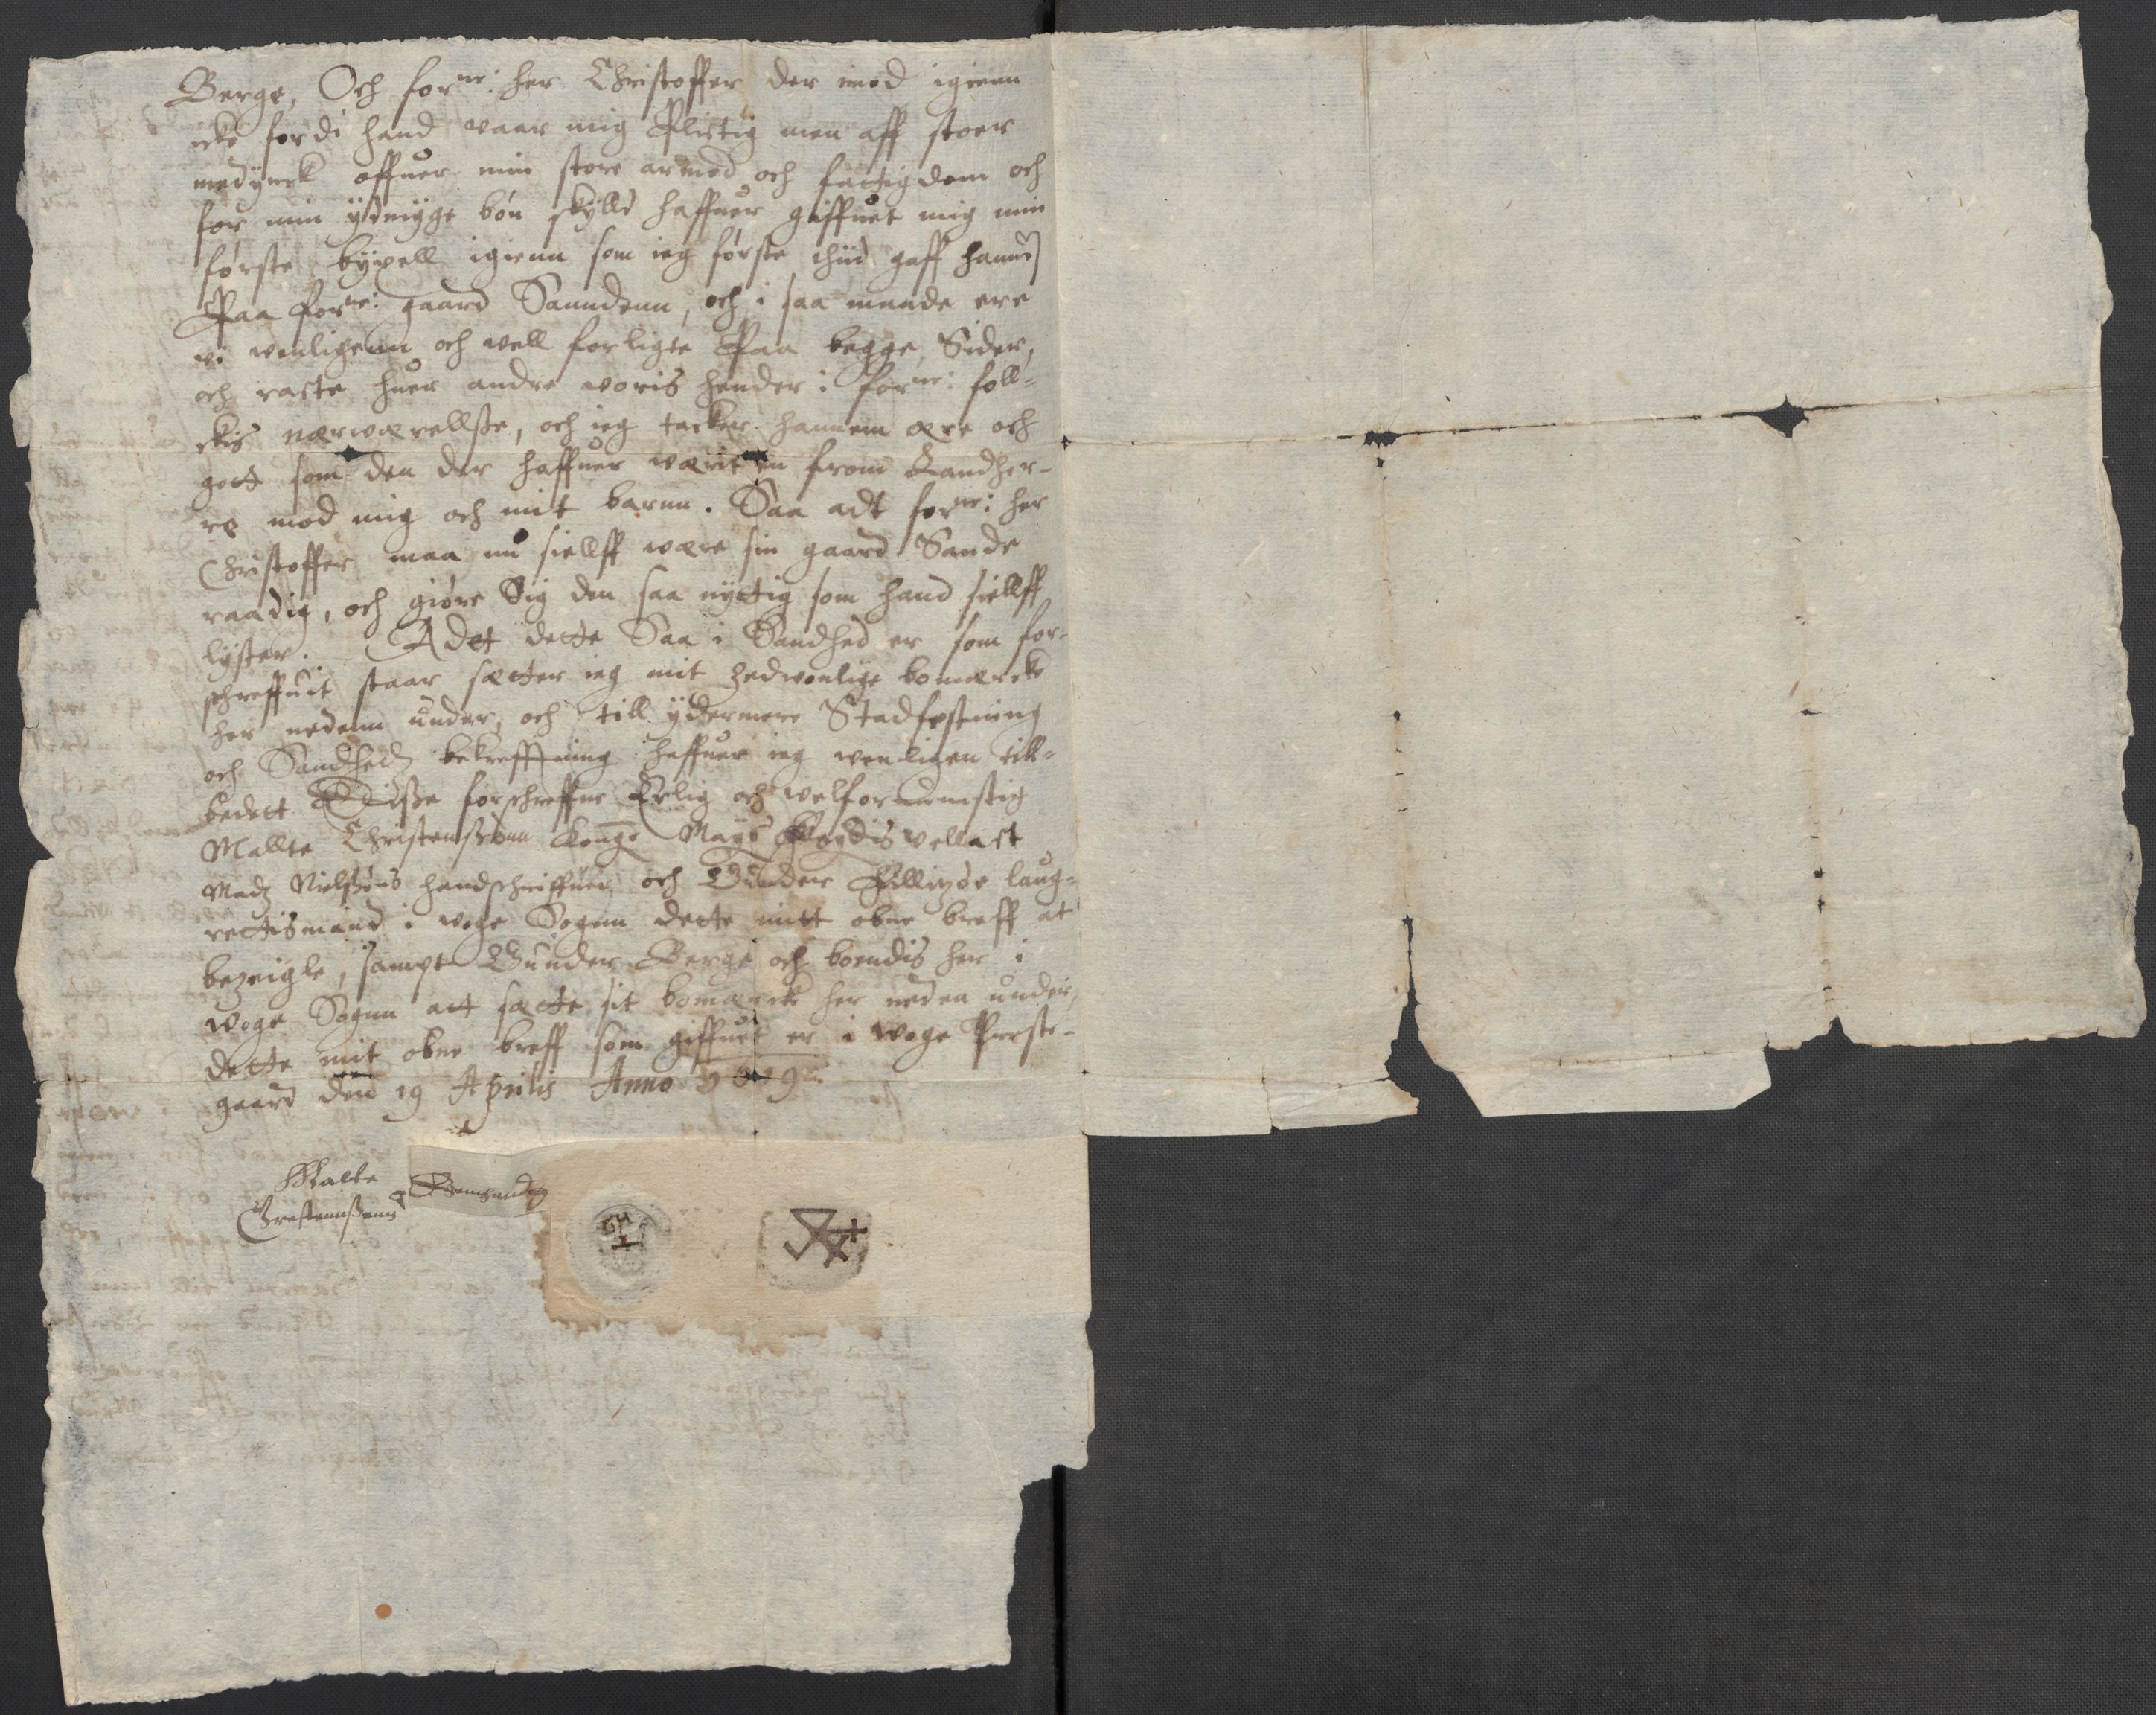 Berge, Och forne: her Christoffer der imod igienn
icke fordi hand waar mig Plictig men aff stoer
medynck offuer min store armod och fattigdom och
for min ydmyge bøn skylld haffuer giffuet mig min
første byxell igienn som ieg første thiid gaff hannem
Paa forne: gaard Sanndenn, och i saa maade ere
vi venligenn och vell forligte Paa begge Sider,
och racte huer andre woris hender i forne: foll=
ckis nærwærellße, och ieg tacker hannem ære och
gott som den der haffuer værit en from Landher-
re mod mig och mit barnn. Saa adt forne: her
Christoffer maa nu siellff være sin gaard Sande
raadig, och giøre Sig den saa nyttig som hand siellff
lyster. Adt dette Saa i Sandhed er som for-
schreffuit staar sætter ieg mit sedwonlige bomærcke
her nedenn under, och till ydermere Stadfestning
och Sandheds bekrefftning haffuer ieg venligen till=
bedett Diße forschreffne Erlig och velfornumstig
Mallte Christenßønn Konge Mays Fogdis vellact
Madz Nielßøns handschriffuer och Gunder laug=
rettismand i woge Sognn dette mitt obne breff at
bezeigle, sampt Gunder Berge och boendis her i
woge Sognn att sætte sit bomærck her neden under,
dette mit obne breff som giffuet er i woge Preste-
gaard den 19 Aprilis Anno
Malte
Christennßenn